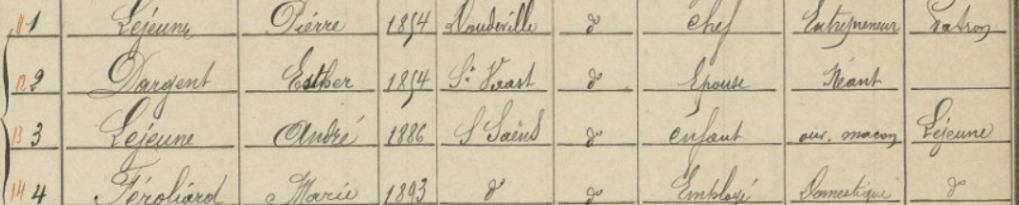 11 1 Lejeune Pierre 1854 Doudeville d° Chef Entrepreneur Patron
12 2 Dargent Esther 1854 St Vaast d° Epouse Néant
13 3 Lejeune André 1886 St Saëns d° enfant ouv. maçon Lejeune
14 4 Féroliard Marie 1893 d° d° Employé Domestique d°